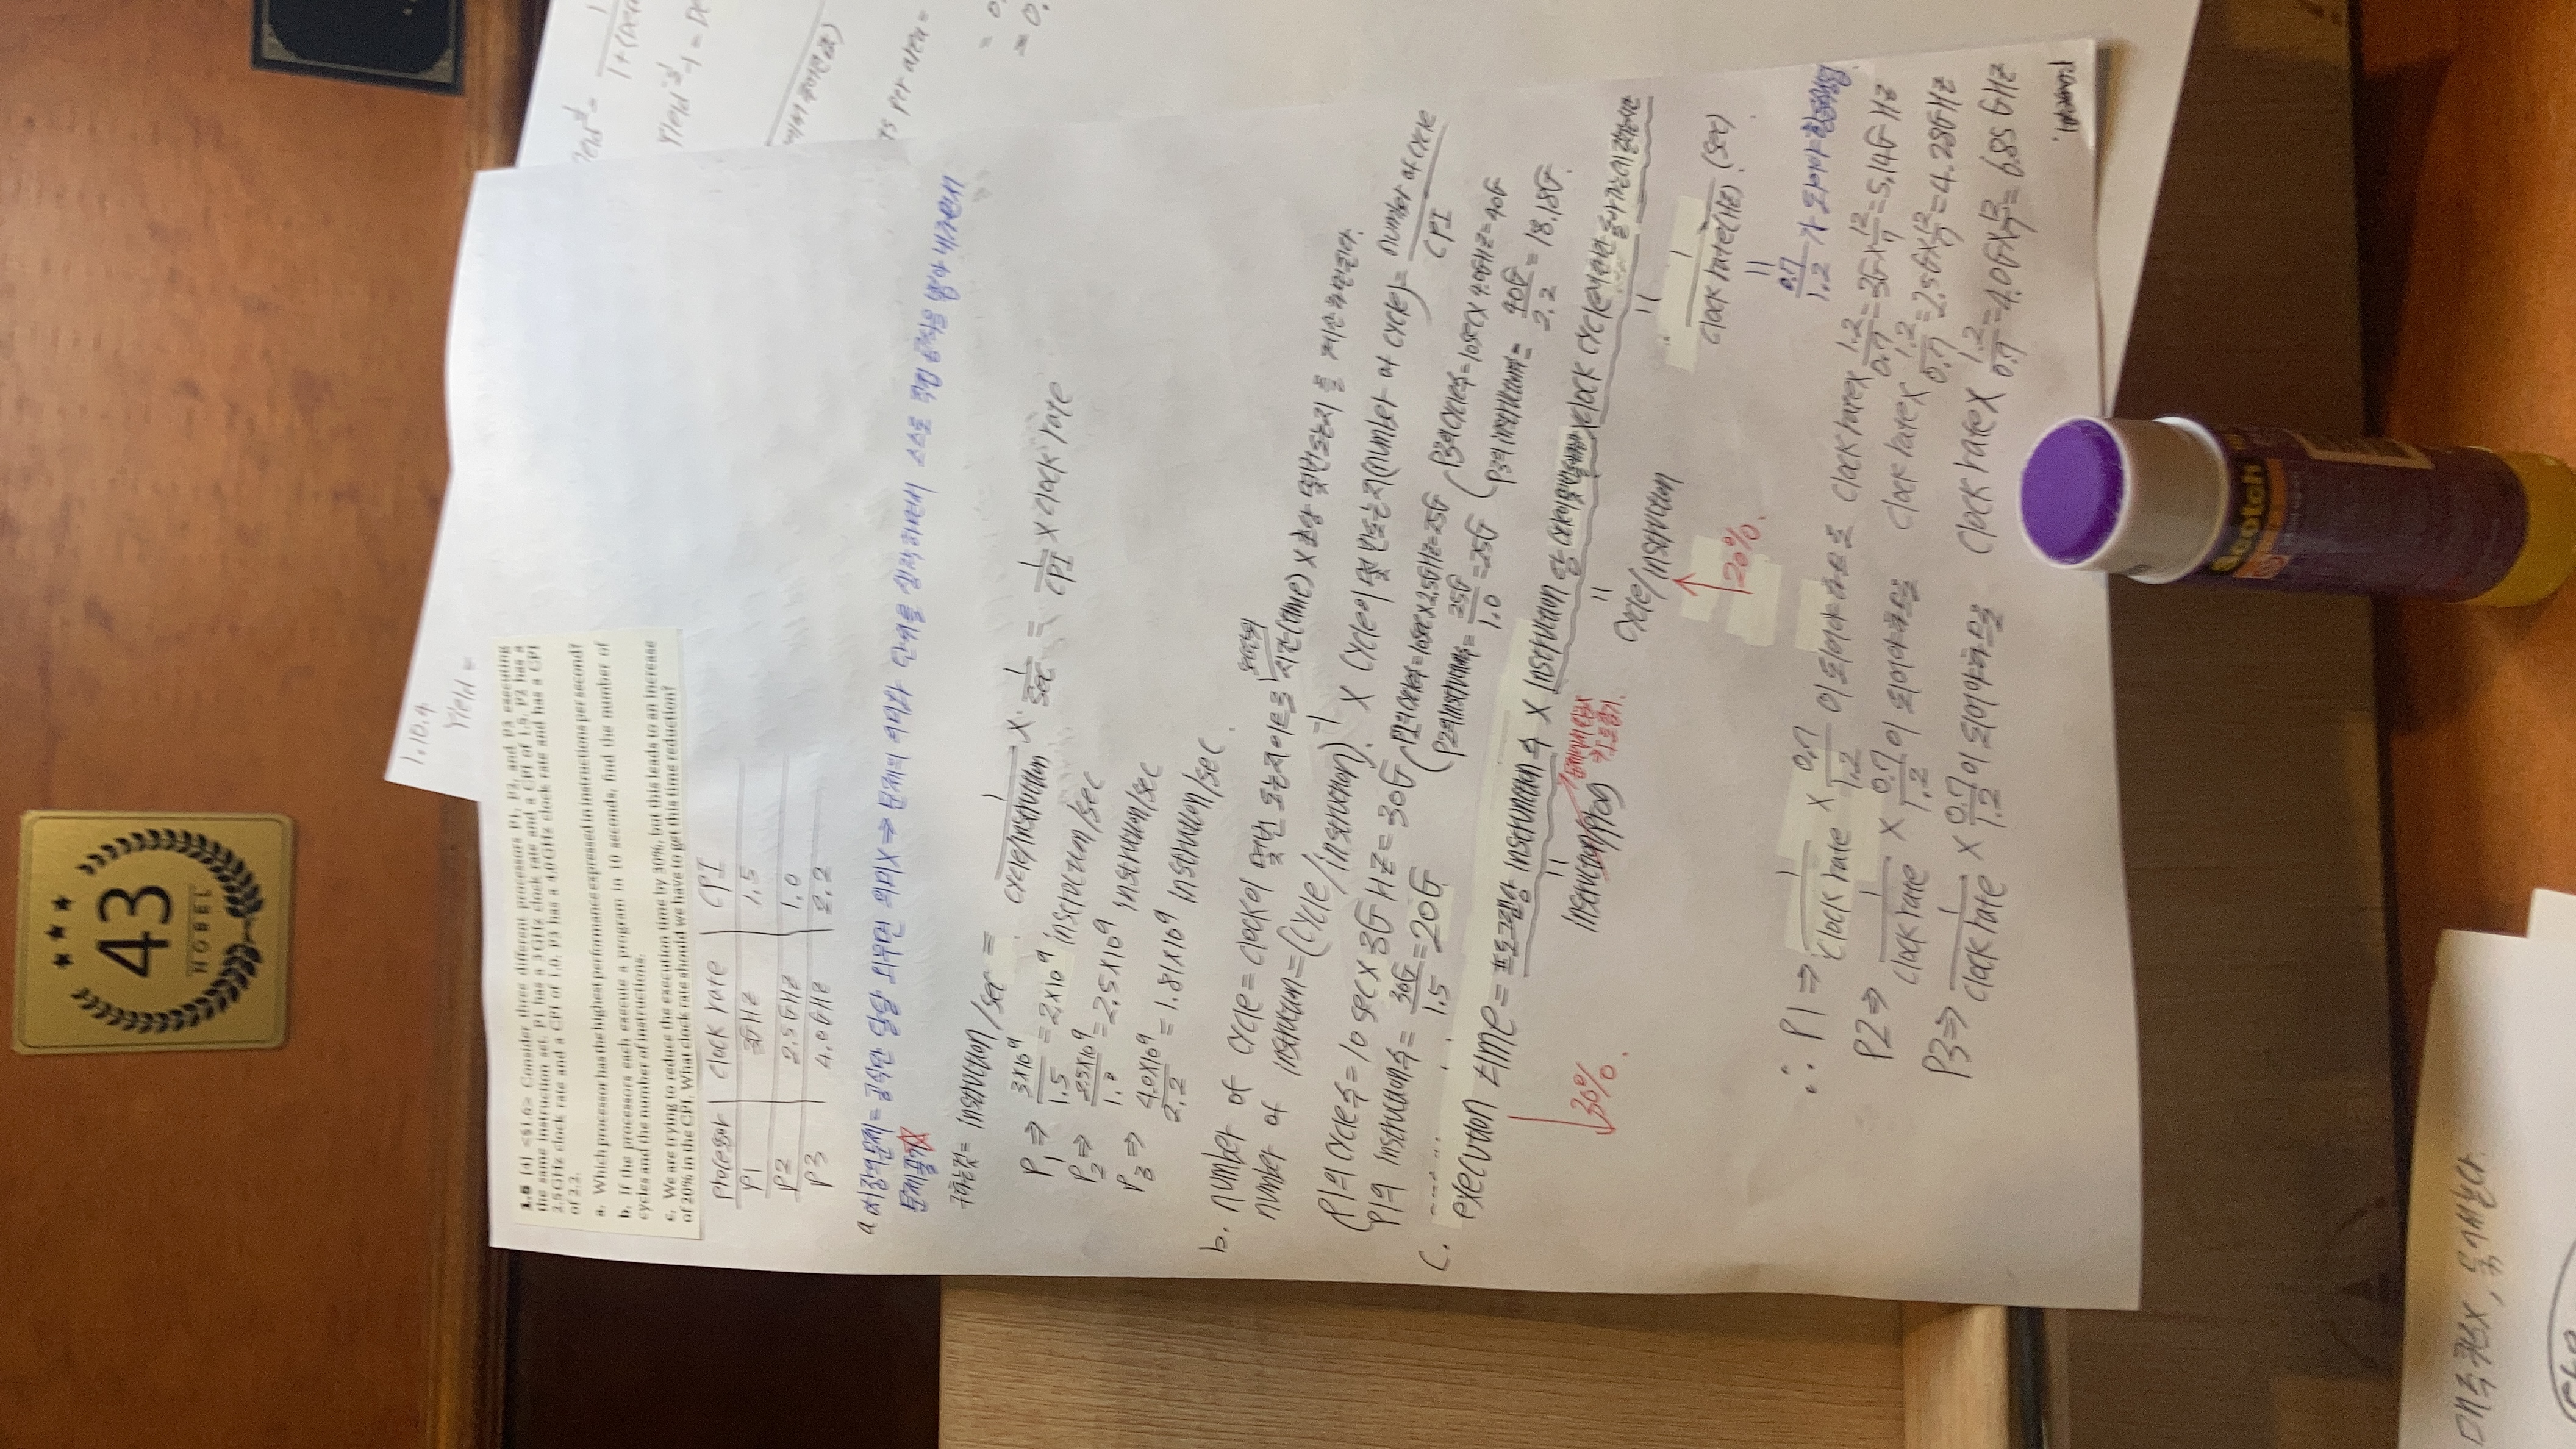 43
NOBEL
1.10.4
Yield =
1.5 [4] <§1.6> Consider three different processors P1, P2, and P3 executing
the same instruction set. P1 has a 3 GHz clock rate and a CPI of 1.5. P2 has a
2.5 GHz clock rate and a CPI of 1.0. P3 has a 4.0 GHz clock rate and has a CPI
of 2.2.
a. Which processor has the highest performance expressed in instructions per second?
b. If the processors each execute a program in 10 seconds, find the number of
cycles and the number of instructions.
c. We are trying to reduce the execution time by 30%, but this leads to an increase
of 20% in the CPI. What clock rate should we have to get this time reduction?
processor clock rate CPI
P1 3GHz 1.5
P2 2.5GHz 1.0
P3 4.0GHz 2.2
a 공식만 달달 외우면 의미X ⇒ 문제의 의미와 단위를 생각하면서 스스로 직접 공식을 내가면서
문제풀기☆
구하는것= instruction/sec = 1/(cycle/instruction) × 1/sec = 1/CPI × clock rate
P1 ⇒ 3×10^9/1.5 = 2×10^9 instruction/sec
P2 ⇒ 2.5×10^9/1.0 = 2.5×10^9 instruction/sec
P3 ⇒ 4.0×10^9/2.2 = 1.81×10^9 instruction/sec
b. number of cycle = clock이 몇번 도는지이므로 시간(time) × 초당 몇번도는지를 계산하면된다.
number of instruction = (cycle/instruction)^-1 × cycle이 몇번도는지(number of cycle) = number of cycle/CPI
P1의 cycle수 = 10sec × 3GHz = 30G
P1의 instruction수 = 30G/1.5 = 20G
cycle수 = 10sec × 2.5GHz = 25G
P2의 instruction수 = 25G/1.0 = 25G
P3의 cycle수 = 10sec × 4.0GHz = 40G
P3의 instruction수 = 40G/2.2 = 18.18G
c.
execution time = 프로그램당 instruction 수 × instruction 당 × clock cycle 한번 돌아가는데 걸리는시간
30%.
instruction/prog
cycle/instruction
20%.
1/clock rate(Hz) (sec)
0.7/1.2 가 되어야
∴ P1 ⇒ 1/clock rate × 0.7/1.2 이 되어야하므로 clock rate × 1.2/0.7 = 3G × 12/7 = 5.14G Hz
P2 ⇒ 1/clock rate × 0.7/1.2 이 되어야하므로 clock rate × 1.2/0.7 = 2.5G × 12/7 = 4.28GHz
P3 ⇒ 1/clock rate × 0.7/1.2 이 되어야하므로 clock rate × 1.2/0.7 = 4.0G × 12/7 = 6.85 GHz
per area =
Scotch